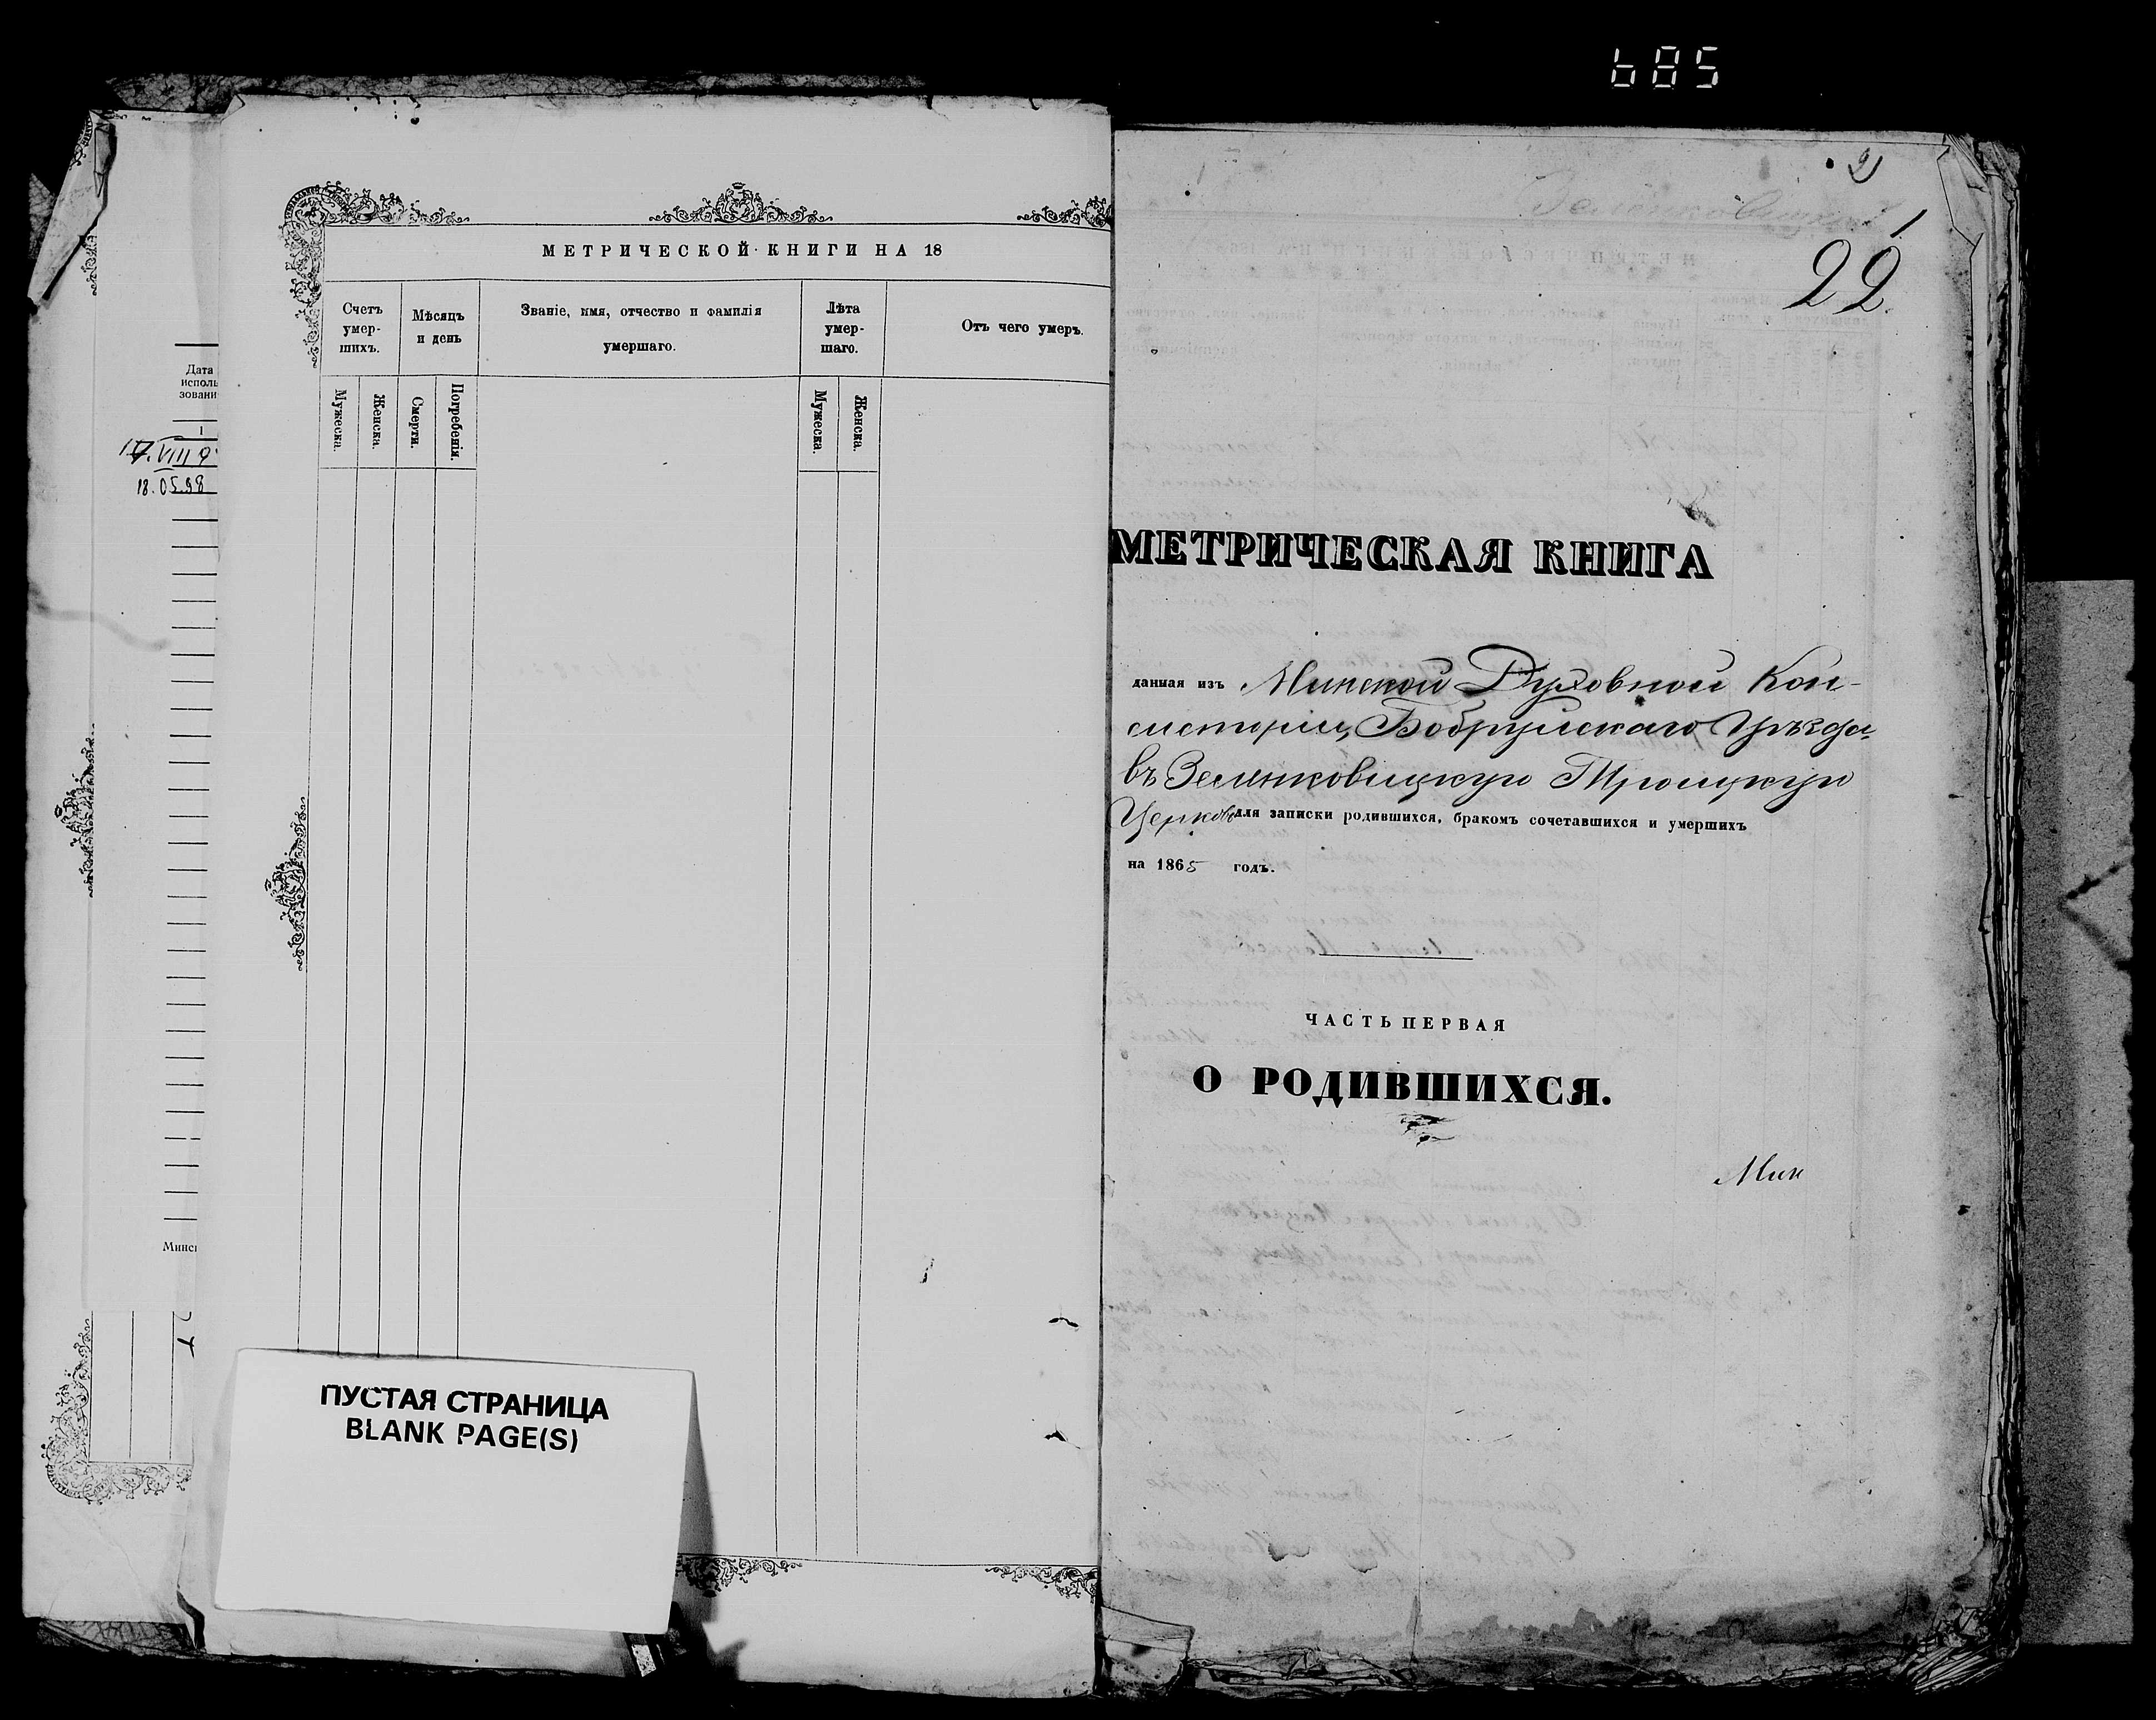 685
Дата
исполь
зовани
1
17.VIII 9
18.05.98
Минск
МЕТРИЧЕСКОЙ КНИГИ НА 18
Счетъ
умер-
шихъ.
Мѣсяцъ
и день
Званіе, имя, отчество и фамилія
умершаго.
Лѣта
умер-
шаго.
Отъ чего умеръ.
Мужеска.
Женска.
Смерти.
Погребенія.
Мужеска.
Женска.
ПУСТАЯ СТРАНИЦА
BLANK PAGE(S)
2
1
22.
МЕТРИЧЕСКАЯ КНИГА
данная изъ Минской Духовной Кон-
систоріи, Бобруйскаго Уѣзда
въ Зеленковицкую Троицкую
Церковь для записки родившихся, бракомъ сочетавшихся и умершихъ
на 1865 годъ.
ЧАСТЬ ПЕРВАЯ
О РОДИВШИХСЯ.
Мин